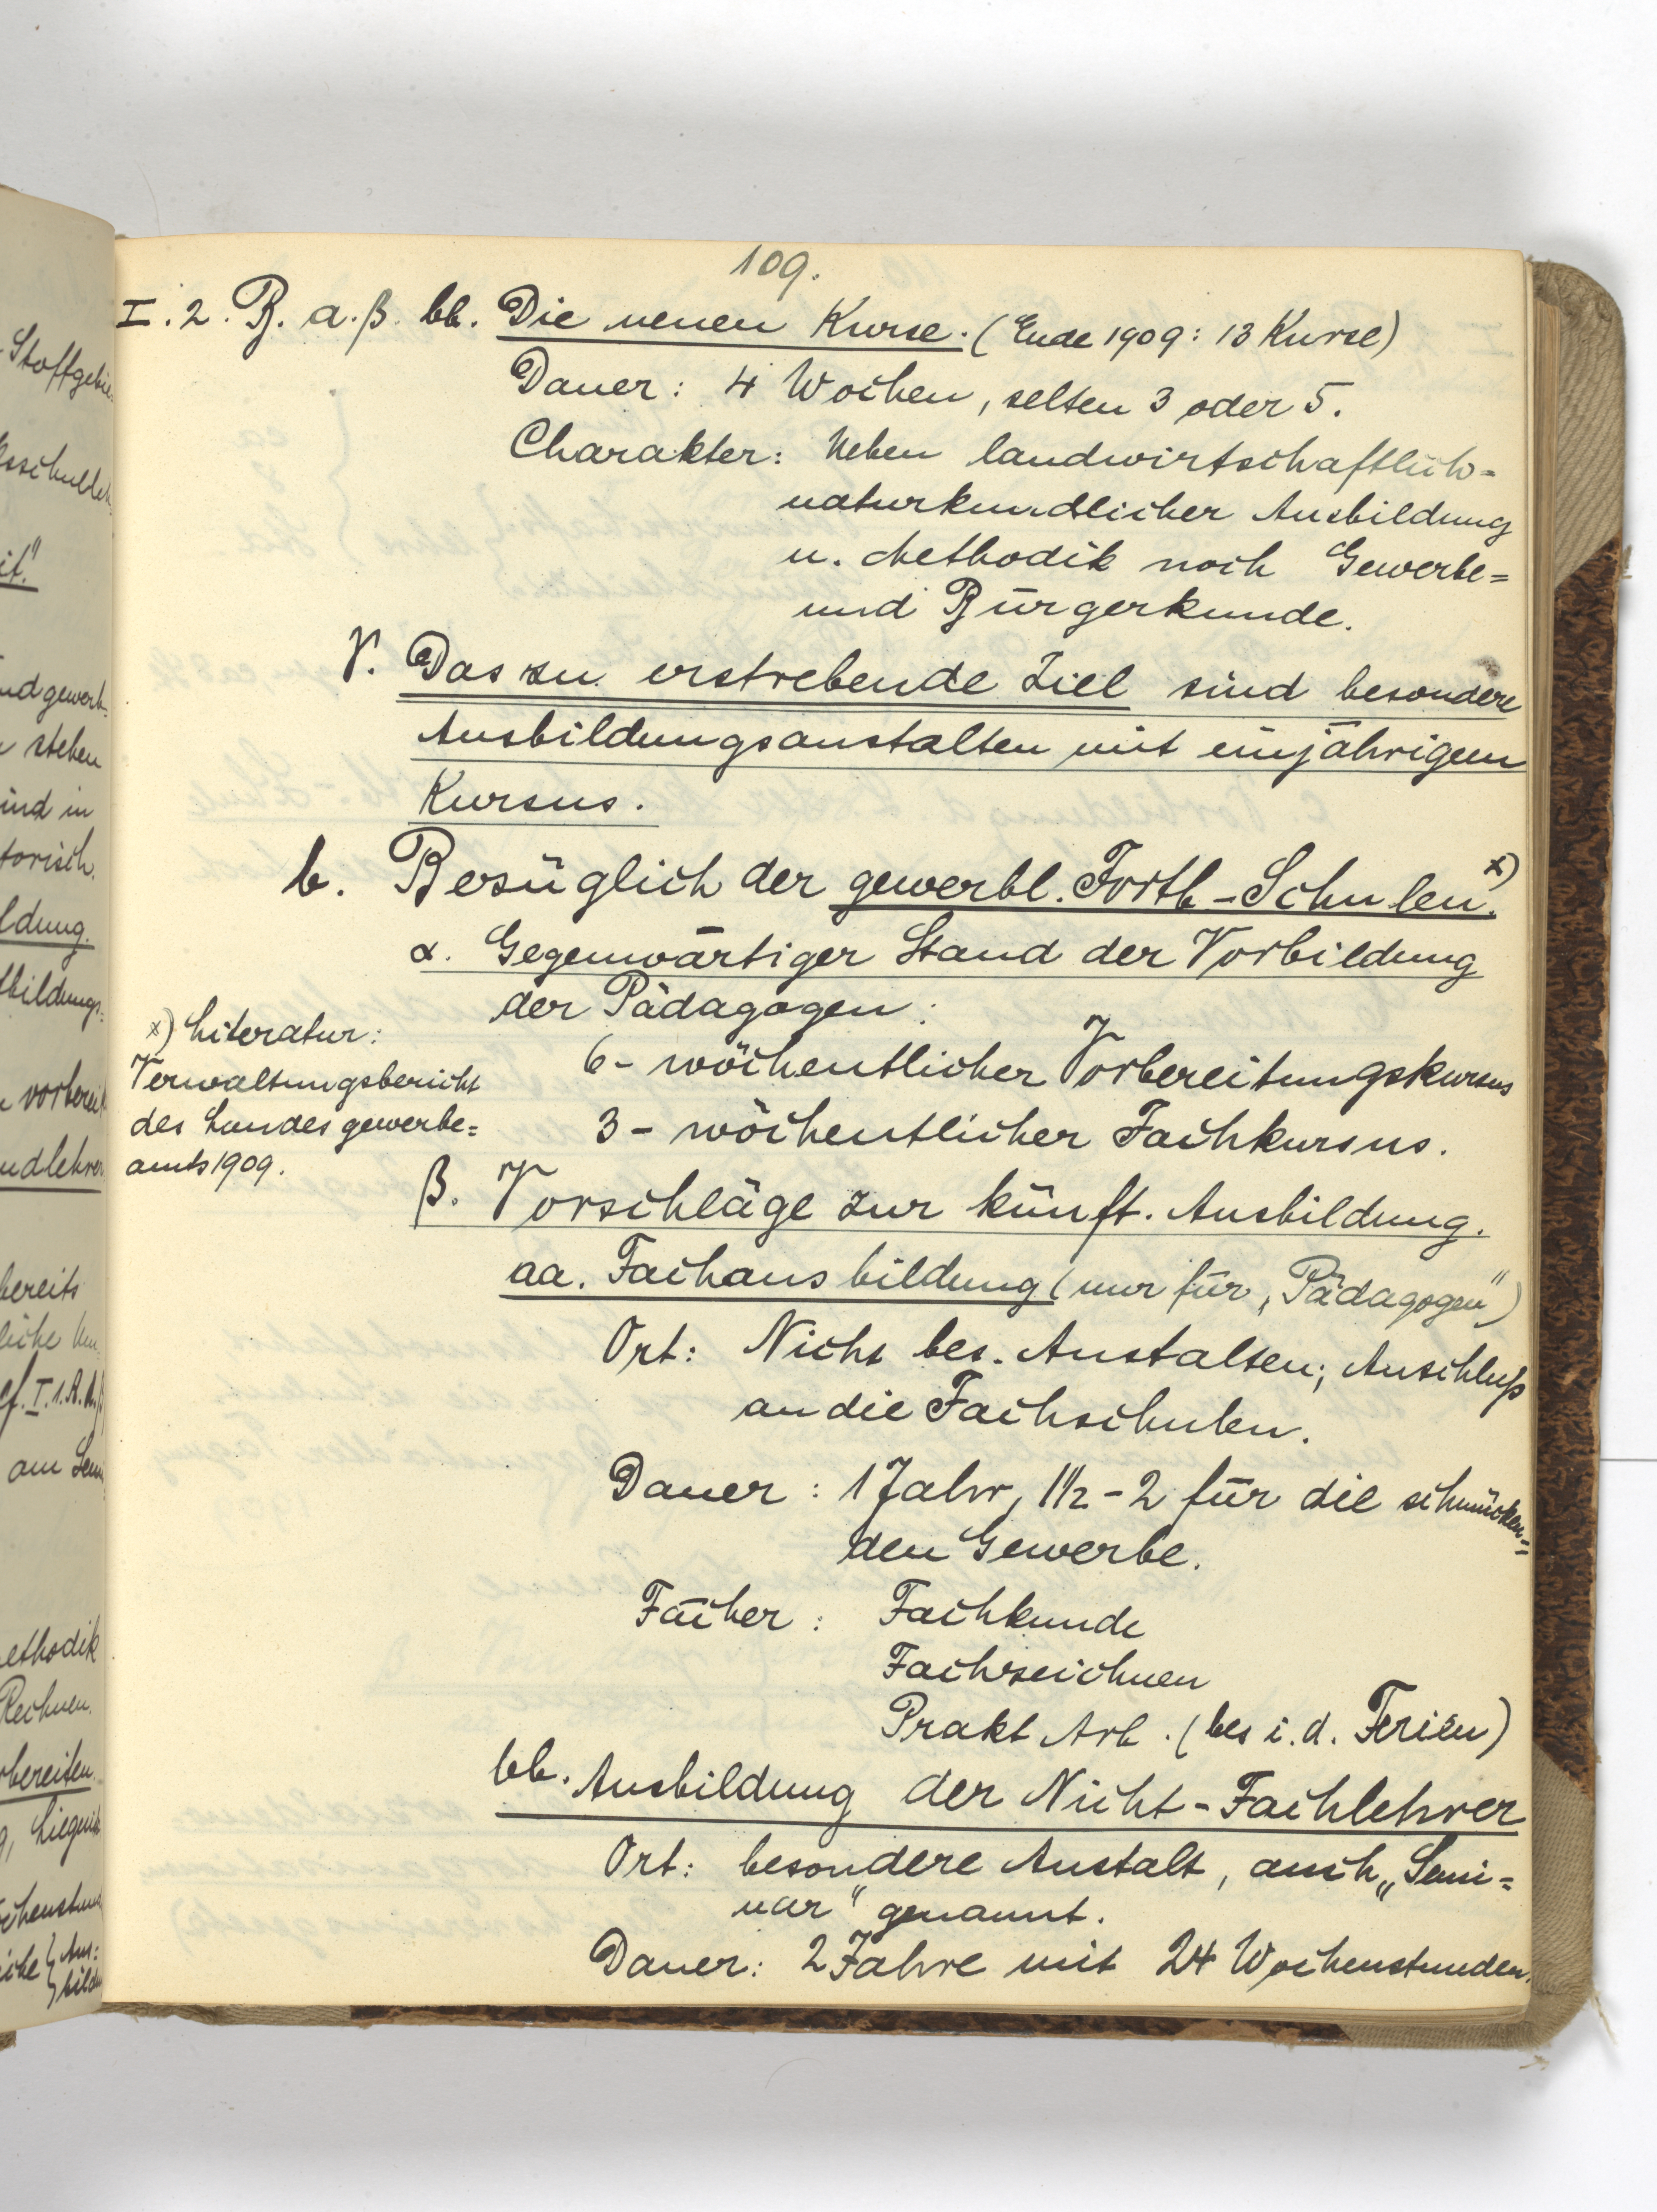 109.
I. 2. B. a. β. bb. Die neuen Kurse. (Ende 1909: 13 Kurse)
Dauer: 4 Wochen, selten 3 oder 5.
Charakter: Neben landwirtschaftlich=
naturkundlicher Ausbildung
u. Methodik noch Gewerbe=
und Bürgerkunde.
γ. Das zu erstrebende Ziel sind besondere
Ausbildungsanstalten mit einjährigem
Kursus.
b. Bezüglich der gewerbl. Fortb-Schulen. x)
α. Gegenwärtiger Stand der Vorbildung
der Pädagogen:
6-wöchentlicher Vorbereitungskursus
3-wöchentlicher Fachkursus.
x) Literatur:
Verwaltungsbericht
des Landesgewerbe=
amts 1909.
β. Vorschläge zur künft. Ausbildung.
aa. Fachausbildung (nur für „Pädagogen")
Ort: Nicht bes. Anstalten; Anschluß
an die Fachschulen.
Dauer: 1 Jahr, 1 1/2-2 für die schmücken=
den Gewerbe.
Fächer: Fachkunde
Fachzeichnen
Prakt Arb. (bes i. d. Ferien)
bb. Ausbildung der Nicht-Fachlehrer
Ort: besondere Anstalt, auch „Semi=
nar" genannt.
Dauer: 2 Jahre mit 24 Wochenstunden.